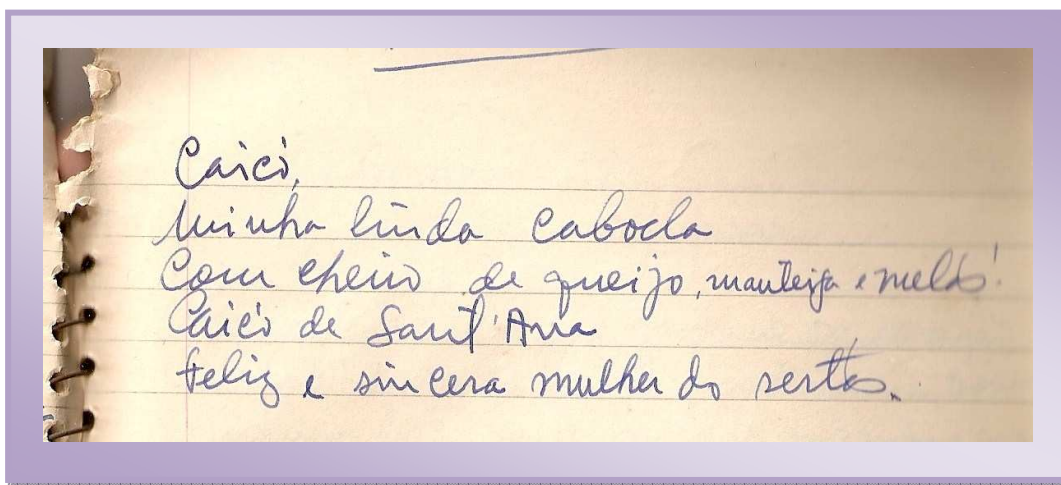 Caicó,
Minha linda cabocla
Com cheiro de queijo, manteiga e melão!
Caicó de Sant'Ana
Feliz e sincera mulher do sertão.